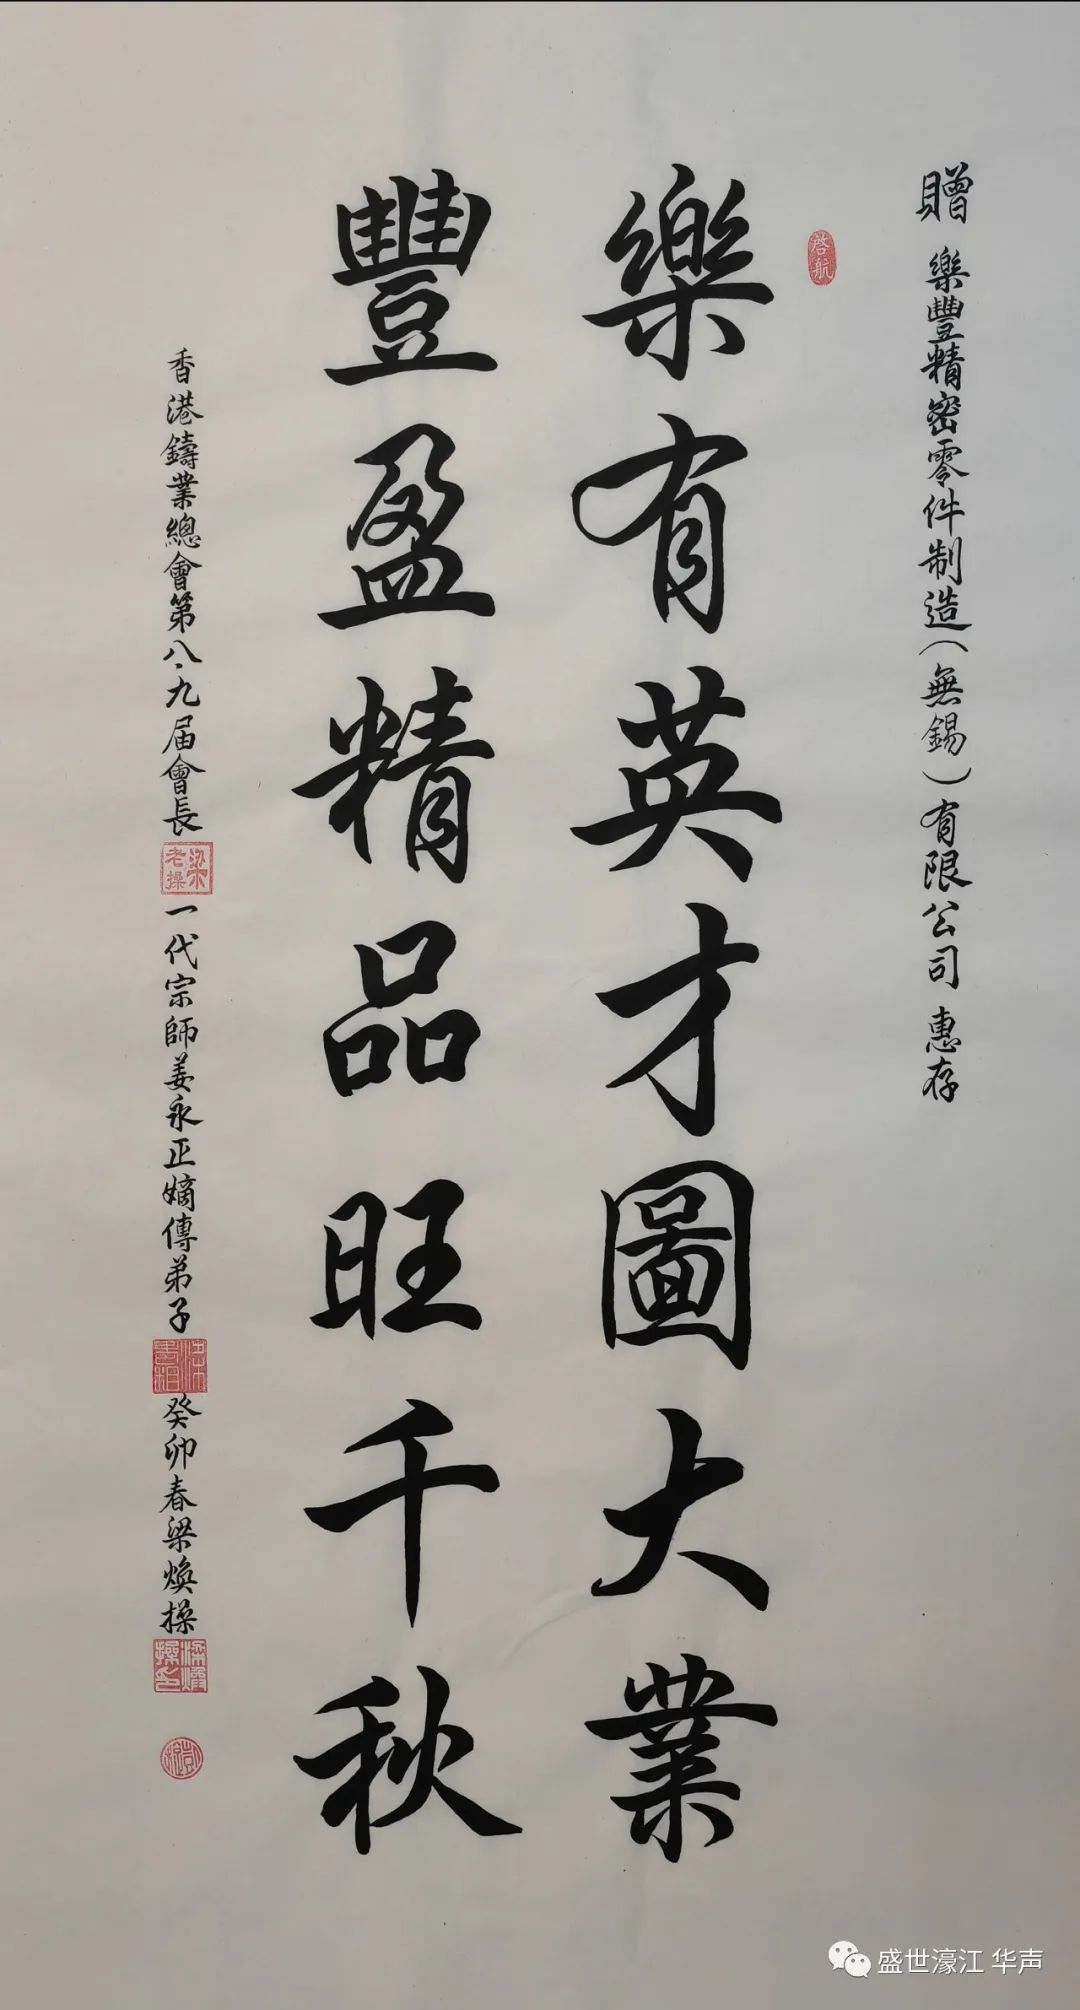 贈 樂豐精密零件制造(無錫)有限公司 惠存
啓航
樂有英才圖大業
豐盈精品旺千秋
香港鑄業總會第八、九届會長
梁老操
一代宗師姜永正嫡傳弟子
癸卯春梁煥操
梁煥操印
盛世濠江 华声